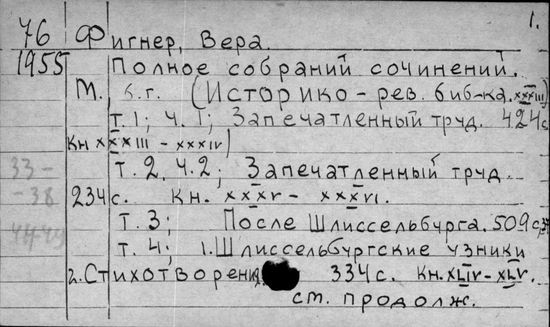 1.
76 Фигнер, Вера.
1955 Полное собраний сочинений.
М. б.г. (Историко-рев. биб-ка. xxxiii)
т. 1; ч. 1; Запечатленный труд. 424 с
Кн xxxiii - xxxiv)
т. 2, ч. 2; Запечатленный труд.
33-
-38 234 с. Кн. xxxv - xxxvi.
т. 3; После Шлиссельбурга. 509 с,
44-45 т. 4; 1. Шлиссельбургские узники
2. Стихотворения 334 с. Кн. xLiv - xLv.
см. продолж.